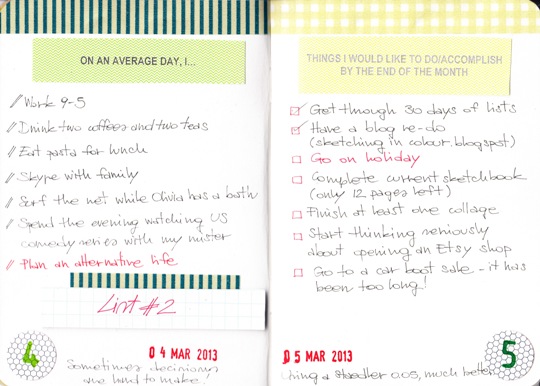 ON AN AVERAGE DAY, I...
// Work 9-5
// Drink two coffees and two teas
// Eat pasta for lunch
// Skype with family
// Surf the net while Olivia has a bath
// Spend the evening watching US
comedy series with my mister
// Plan an alternative life
List #2
04 MAR 2013
4
Sometimes decisions
are hard to make!
THINGS I WOULD LIKE TO DO/ACCOMPLISH
BY THE END OF THE MONTH
Get through 30 days of lists
Have a blog re-do
(sketching in colour.blogspot)
Go on holiday
Complete current sketchbook
(only 12 pages left)
Finish at least one collage
Start thinking seriously
about opening an Etsy shop
Go to a car boot sale - it has
been too long!
05 MAR 2013
5
Using a staedler 0.05, much better